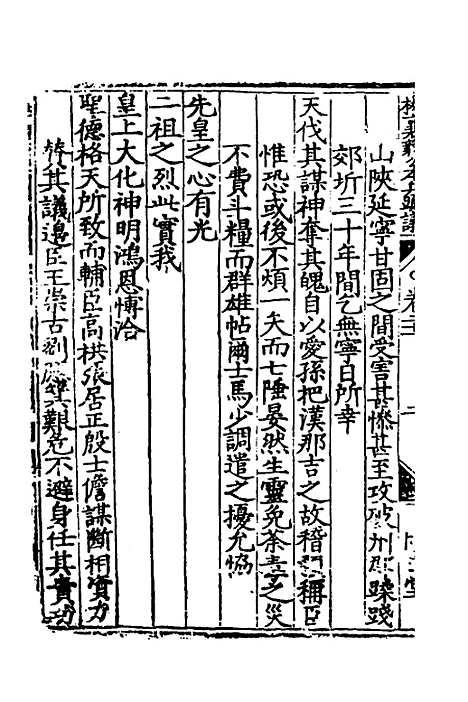 山陝延寧甘固之間受害甚慘甚至攻破州郡蹂踐
郊圻三十年間乞無寧日所幸
天伐其謀神奪其魄自以愛孫把漢那吉之故稽顙稱臣
惟恐或後不煩一矢而七陲晏然生靈免荼毒之災
不費斗糧而群雄帖爾士馬少調遣之擾允協
先皇之心有光
二祖之烈此實我
皇上大化神明鴻恩愽洽
聖德格天所致而輔臣高拱張居正殷士儋謀斷相資力
其議邊臣王崇古劉應其艱危不避身任其責功